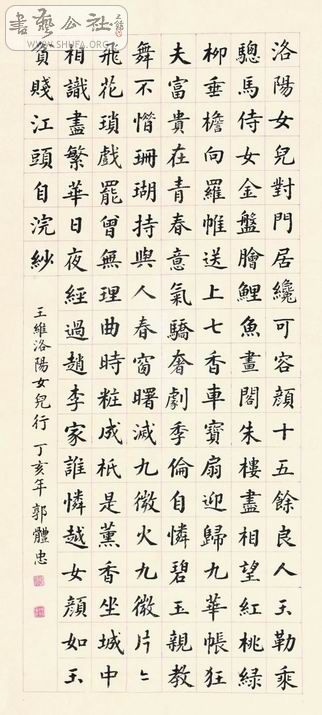 書藝公社
WWW.SHUFA.ORG.CN
洛陽女兒對門居纔可容顏十五餘良人玉勒乘
驄馬侍女金盤膾鯉魚畫閣朱樓盡相望紅桃綠
柳垂檐向羅帷送上七香車寶扇迎歸九華帳狂
夫富貴在青春意氣驕奢劇季倫自憐碧玉親教
舞不惜珊瑚持與人春窗曙滅九微火九微片〻
飛花瑣戲罷曾無理曲時粧成祇是薰香坐城中
相識盡繁華日夜經過趙李家誰憐越女顏如玉
貧賤江頭自浣紗
王維洛陽女兒行 丁亥年 郭體忠